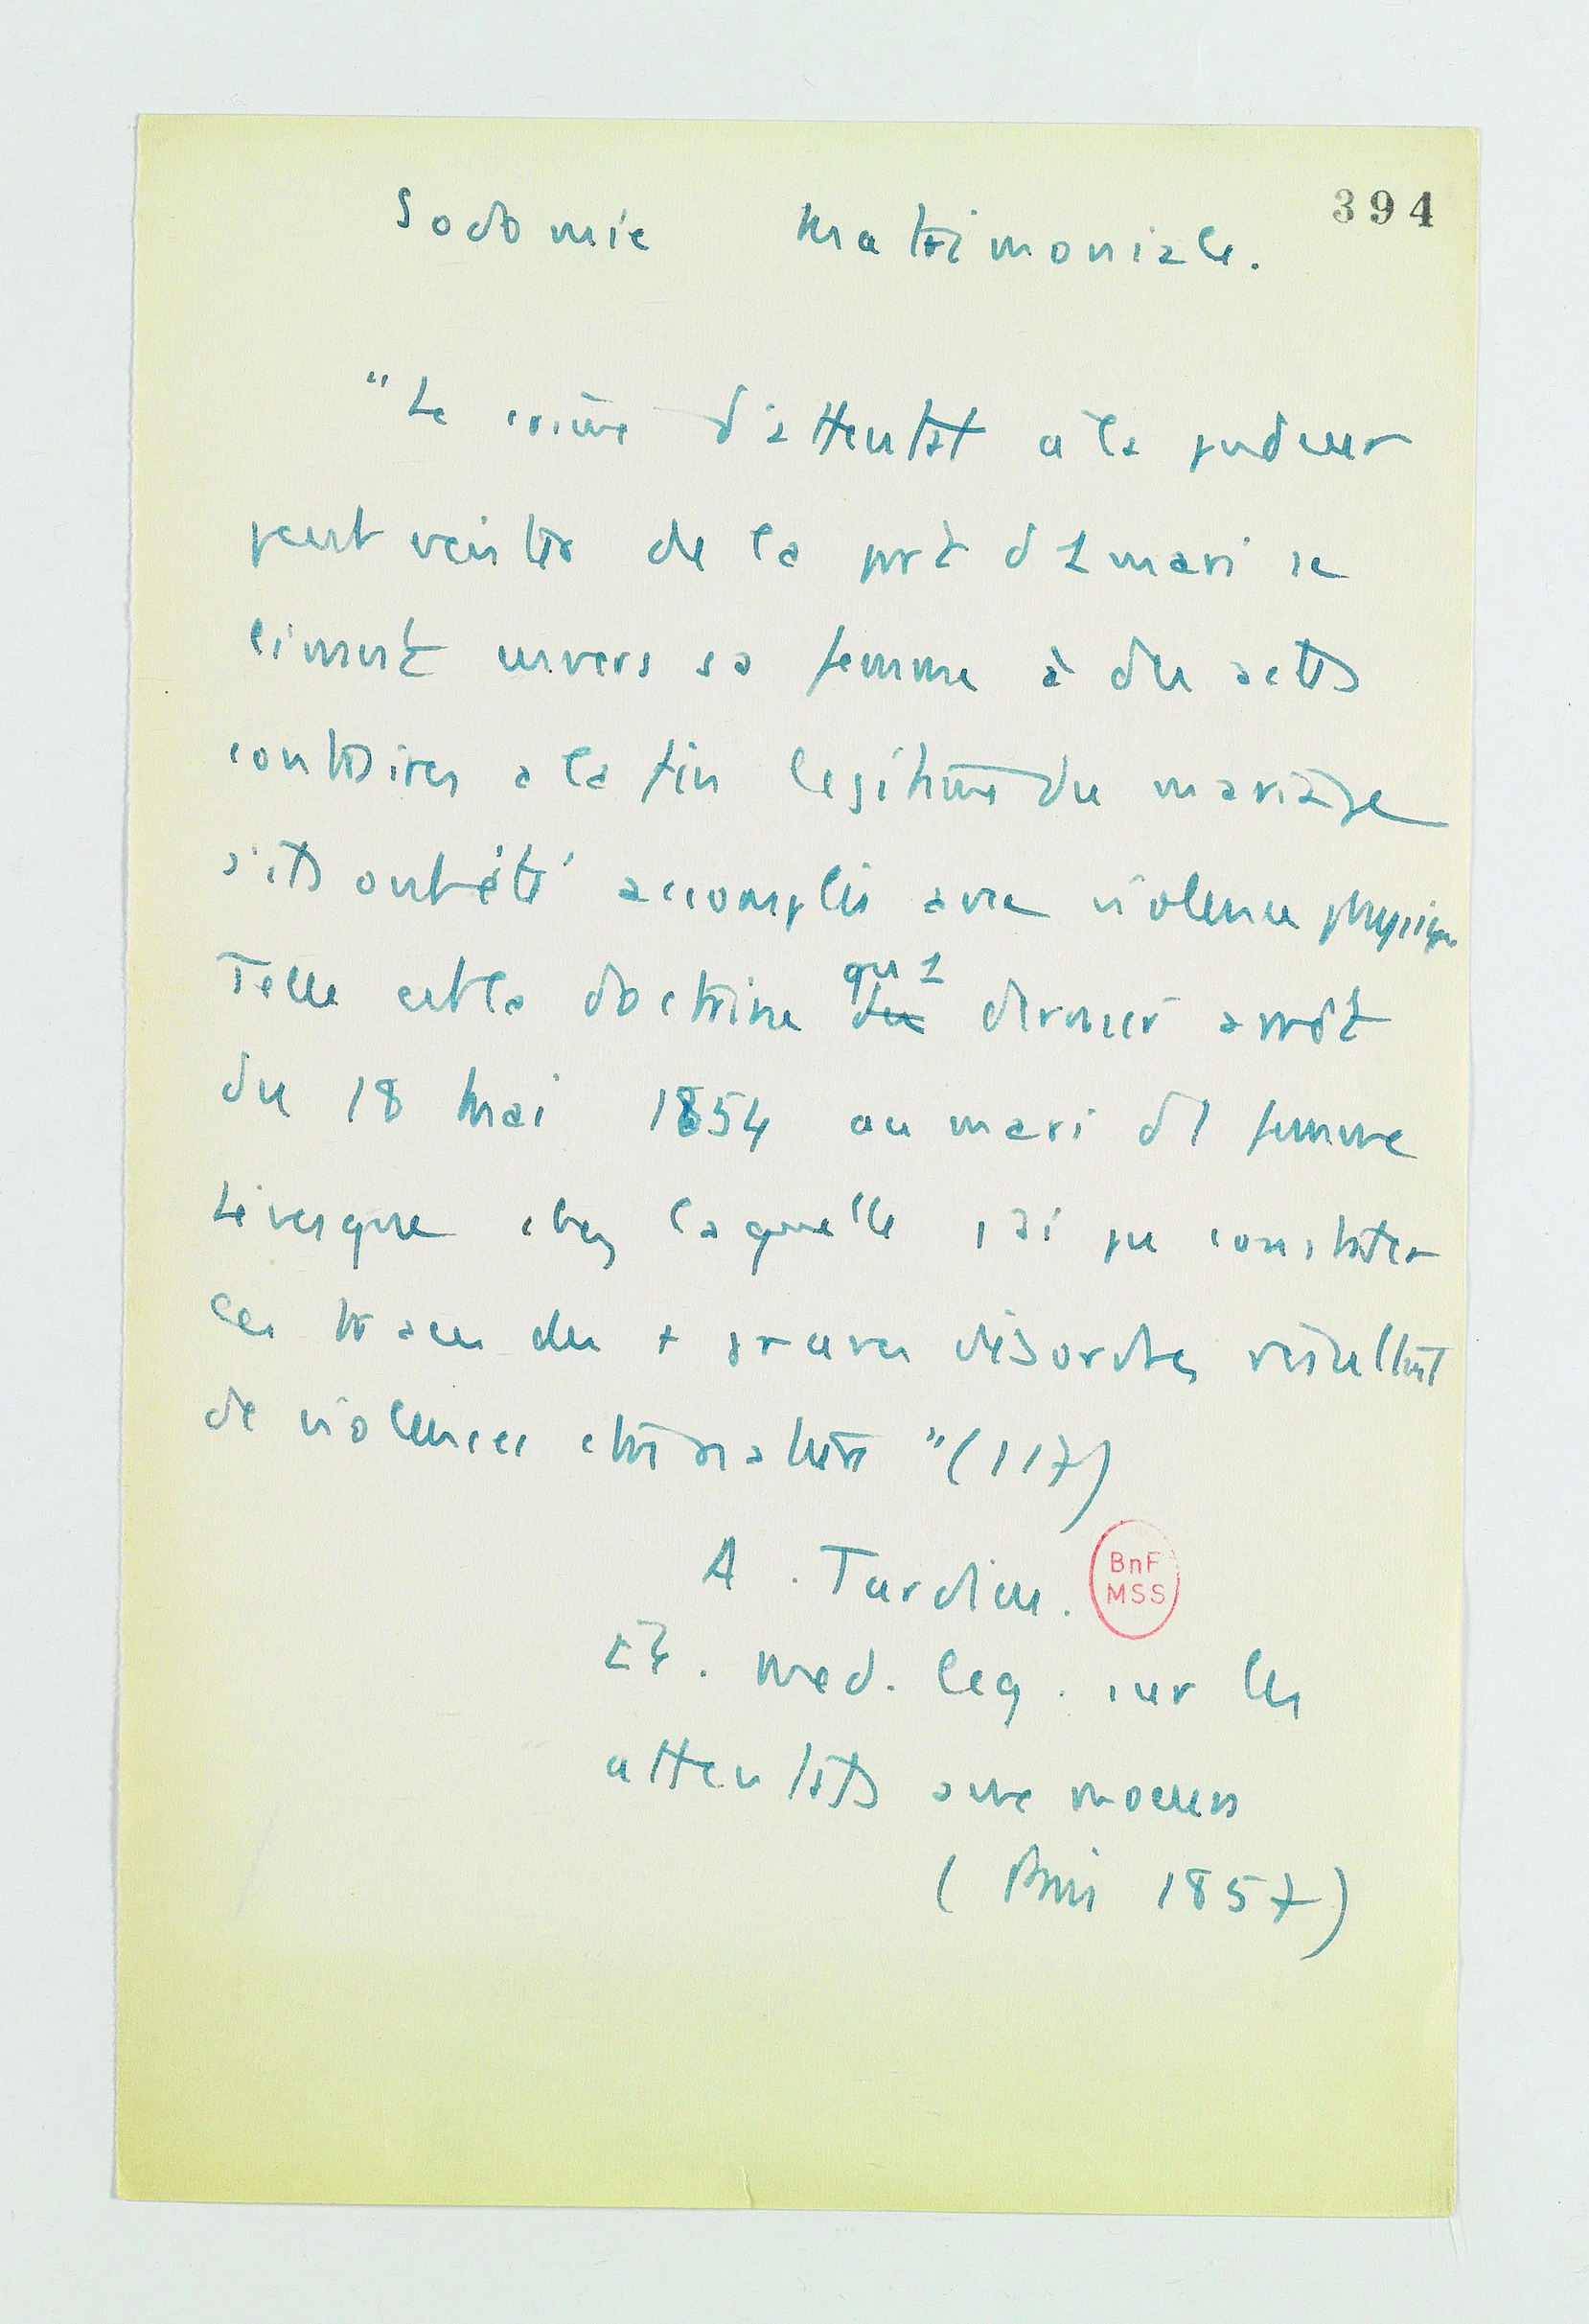 394
Sodomie matrimoniale.
"Le crime d'attentat à la pudeur
peut exister de la prt d 1 mari se
livrant envers sa femme à des actes
contraires a la fin legitime du mariage
s'ils ont été accomplis avec violence physique
Telle est la doctrine qu 1
des dernier arrêt
du 18 mai 1854 au mari d1 femme
Levesque chez laquelle j'ai pu constater
les traces des + graves désordres résultant
de violences contre nature" (117)
A. Tardieu.
BnF
MSS
Et. med. leg. sur les
attentats aux moeurs
(Paris 1857)